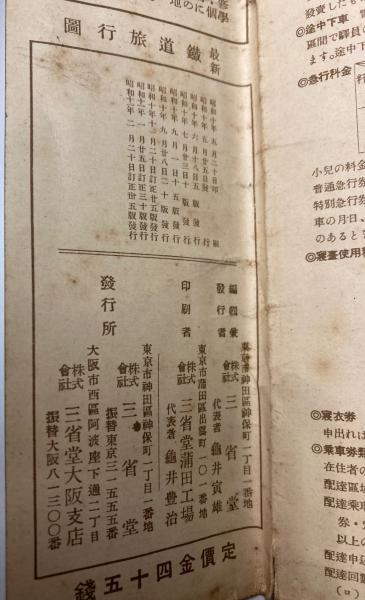 學
個に
の地
最新 鐵道旅行圖
昭和十年五月二十日印刷
昭和十年五月廿五日發行
昭和十年六月十八日五版發行
昭和十年七月廿三日十版發行
昭和十年九月一日十五版發行
昭和十年九月廿八日二十版發行
昭和十年十二月二十日訂正廿五版發行
昭和十一年一月廿五日訂正三十版發行
昭和十一年二月二十日訂正卅五版發行
編輯兼
發行者
東京市神田區神保町一丁目一番地
株式會社 三省堂
代表者 龜井寅雄
印刷者
東京市蒲田區出雲町一〇一番地
三省堂蒲田工場
代表者 龜井豊治
發行所
東京市神田區神保町一丁目一番地
株式會社 三省堂
振替東京三一五五五番
大阪市西區阿波座下通二丁目
株式會社 三省堂大阪支店
振替大阪八一三〇〇番
定價金四十五錢
發賣したも
◎途中下車
區間で驛員の
ます。途中下
◎急行料金
小兒の料金
普通急行券
特別急行券
車の月日、
のあると
◎寢臺使用料
◎寢衣券
申出れは
◎乘車券類
在住者の
配達區域
配達乘車
券・
以上の
配達申込
配達回數
(ロ)